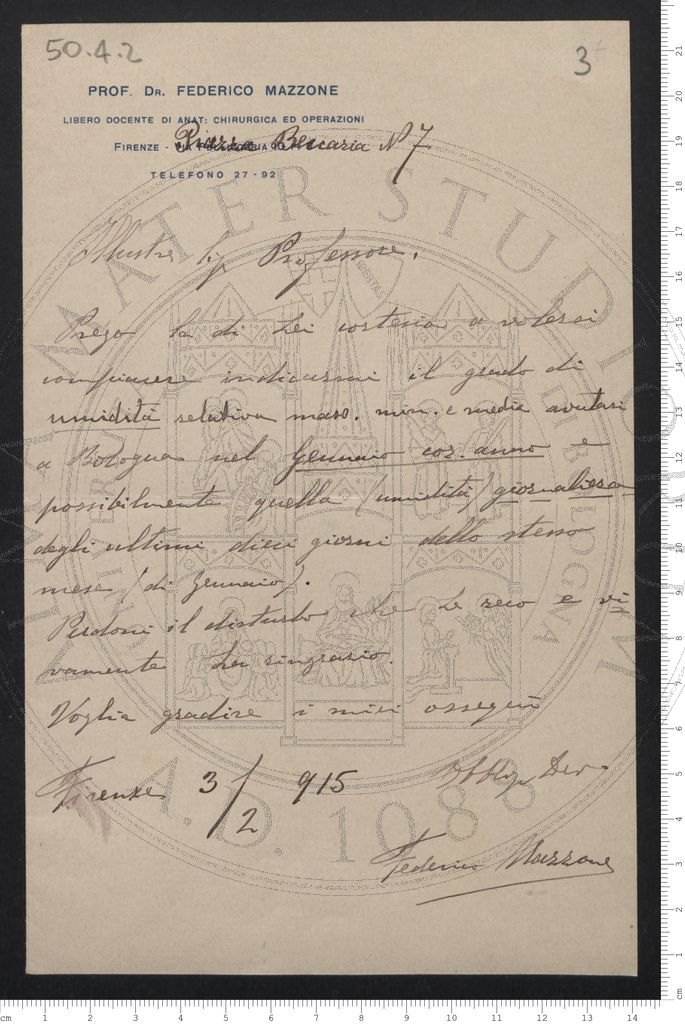 50.4.2
3
PROF. DR. FEDERICO MAZZONE
LIBERO DOCENTE DI ANAT: CHIRURGICA ED OPERAZIONI
FIRENZE - Piazza Beccaria N 7
TELEFONO 27-92
Illustre Sig Professore.
Prego la di Lei cortesia a volersi
compiacere indicarmi il grado di
umidità relativa mass. min. e media avutasi
a Bologna nel Gennaio cor. anno e
possibilmente quella (umidità) giornaliera
degli ultimi dieci giorni dello stesso
mese (di Gennaio).
Perdoni il disturbo che Le reco e vi=
vamente La ringrazio.
Voglia gradire i miei ossequi
Firenze 3/2 915
Obblgo Devo
Federico Mazzone
ALMA MATER STUDIORUM
A.D. 1088